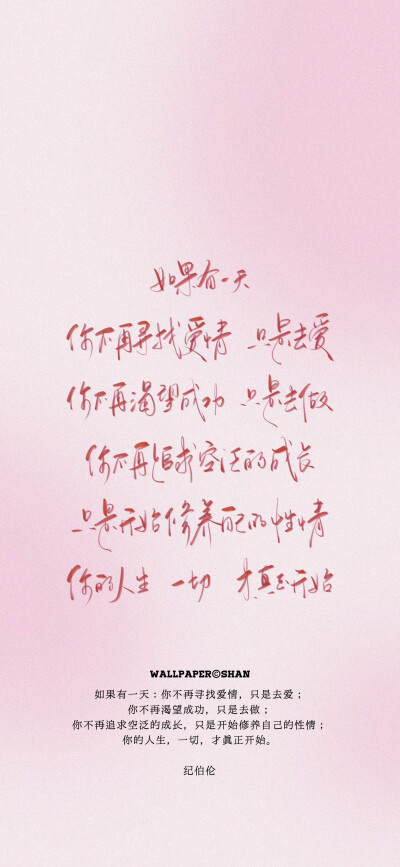 如果有一天
你不再寻找爱情 只是去爱
你不再渴望成功 只是去做
你不再追求空泛的成长
只是开始修养自己的性情
你的人生 一切 才真正开始
WALLPAPER©SHAN
如果有一天：你不再寻找爱情，只是去爱；
你不再渴望成功，只是去做；
你不再追求空泛的成长，只是开始修养自己的性情；
你的人生，一切，才真正开始。
纪伯伦